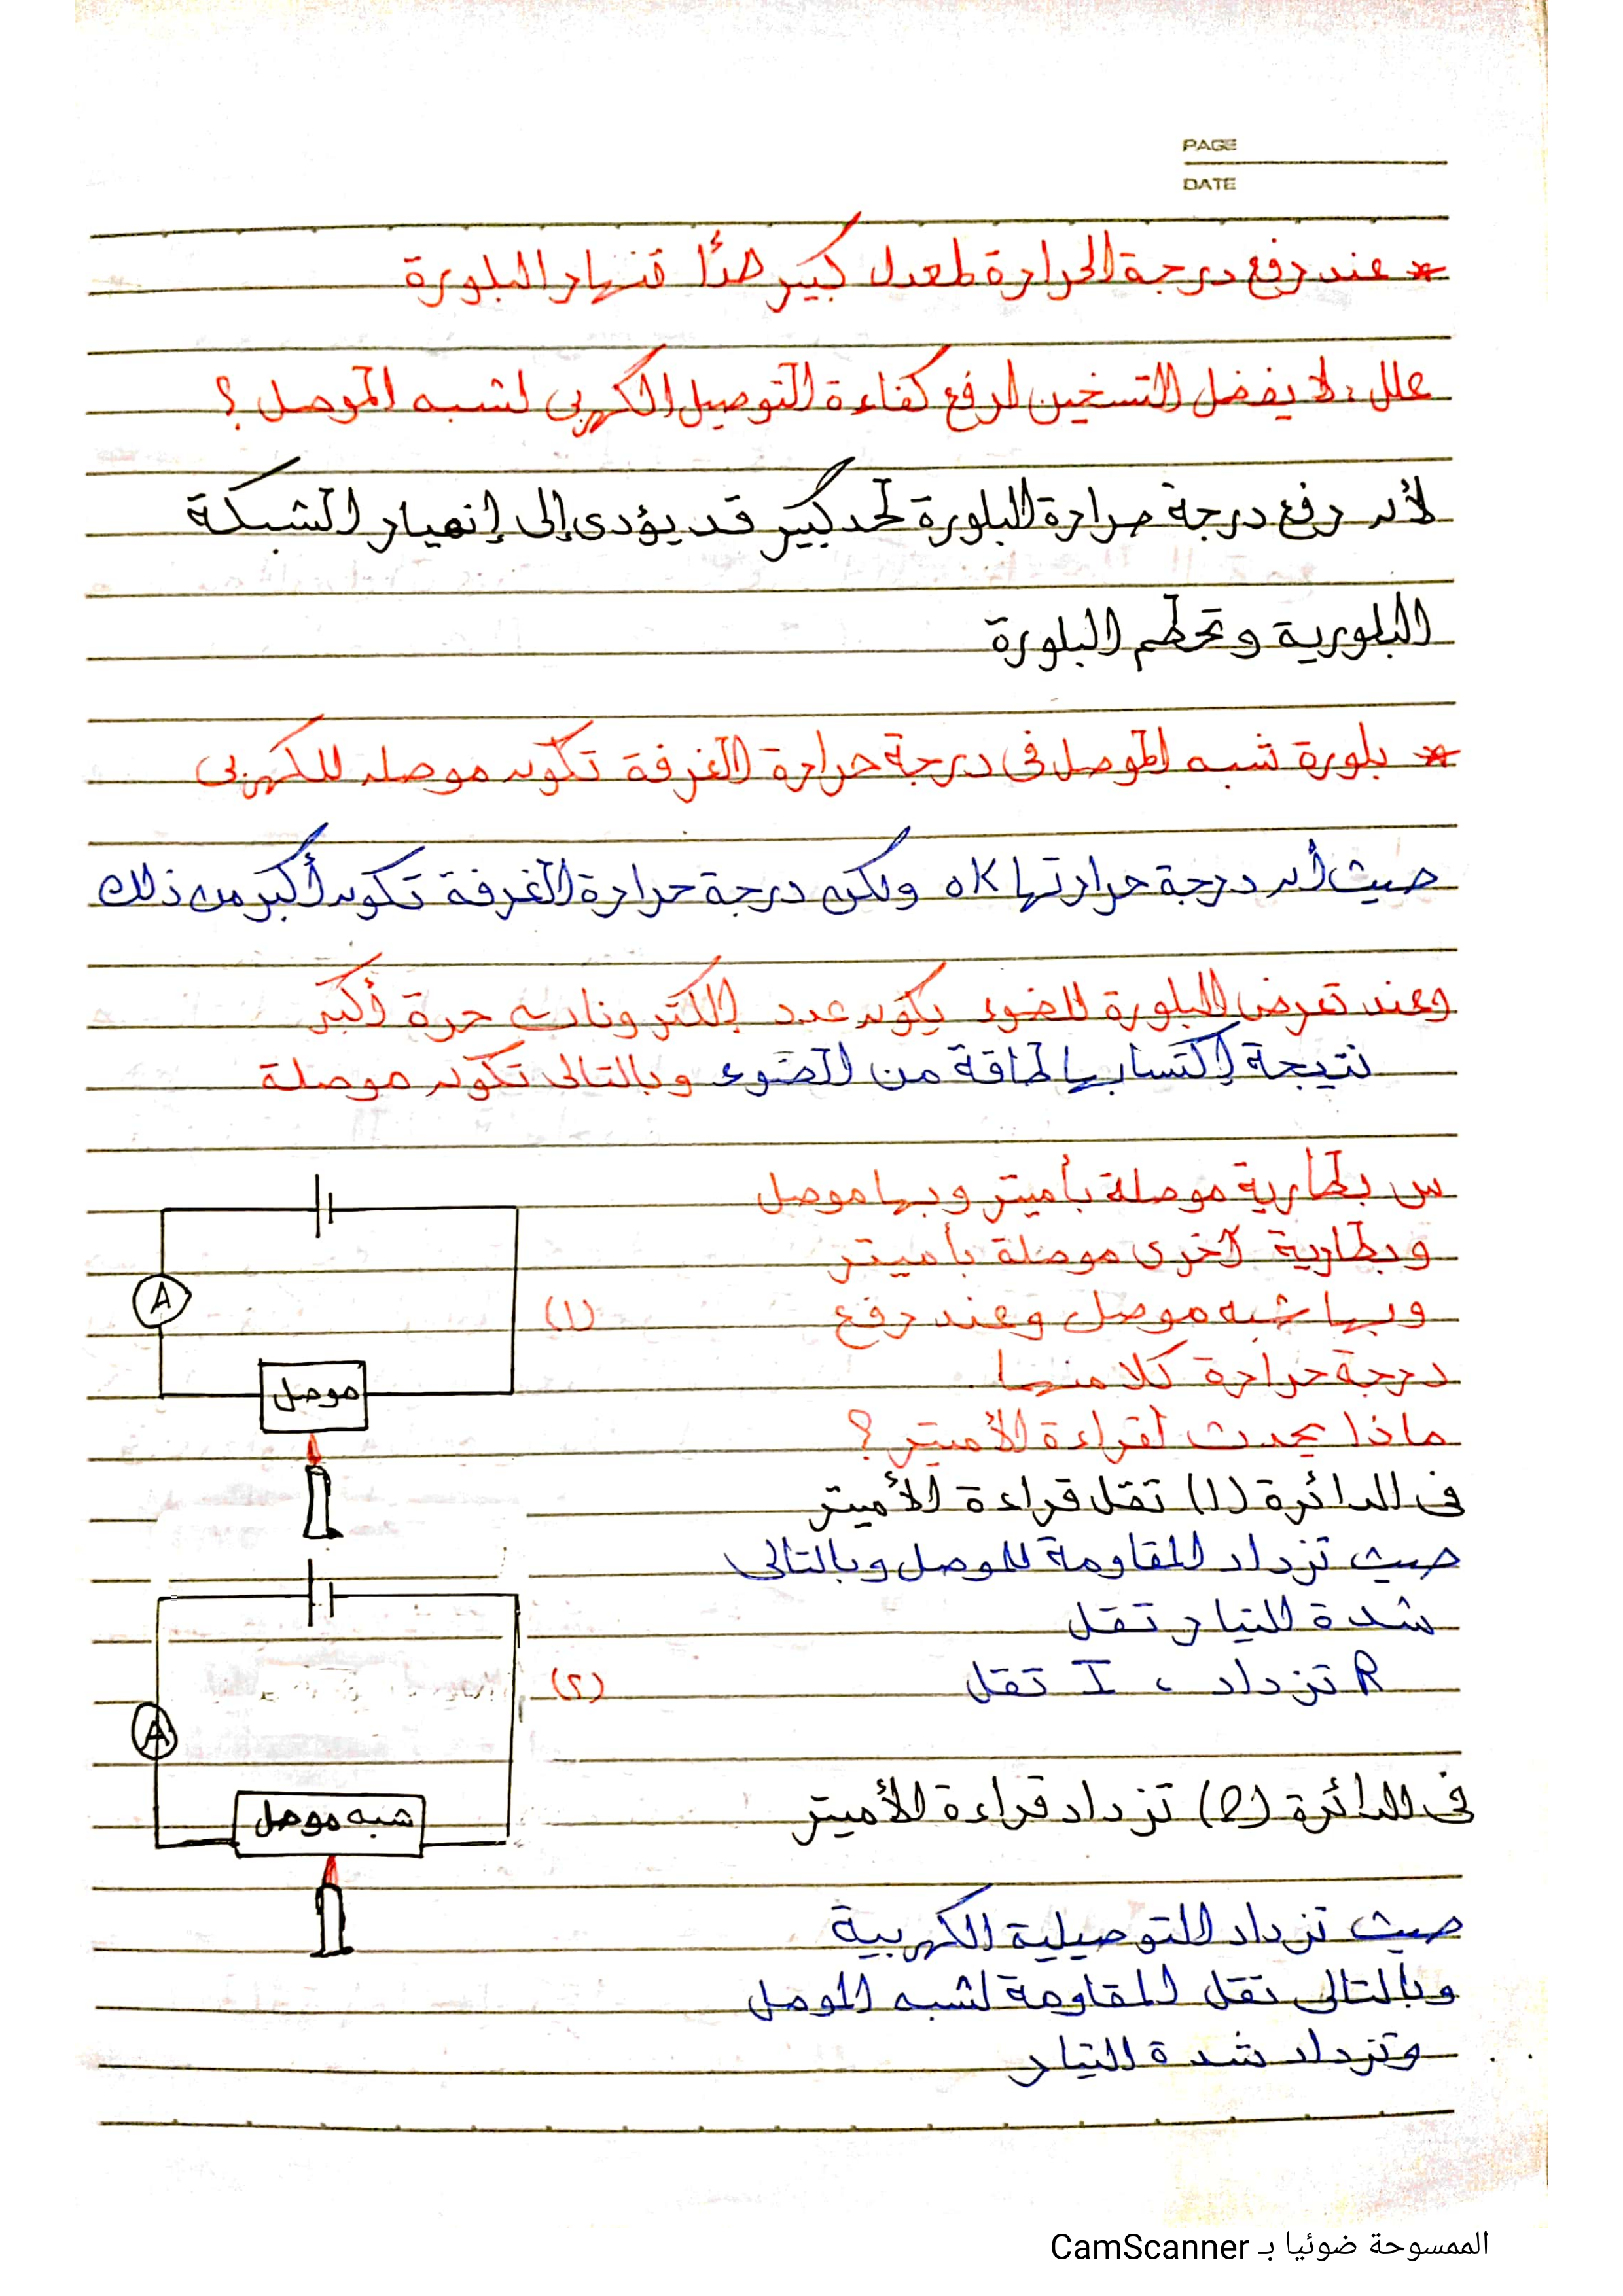 PAGE
DATE
* عند رفع درجة الحرارة لمعدل كبير جدًا تنهار البلورة
علل: لا يفضل التسخين لرفع كفاءة التوصيل الكهربى لشبه الموصل ؟
لأن رفع درجة حرارة البلورة لحد كبير قد يؤدى إلى إنهيار الشبكة
البلورية وتحطم البلورة
* بلورة شبه الموصل فى درجة حرارة الغرفة تكون موصله للكهربى
حيث أن درجة حرارتها 0K ولكن درجة حرارة الغرفة تكون أكبر من ذلك
وعند تعرض البلورة للضوء يكون عدد إلكترونات حرة أكبر
نتيجة إكتسابها طاقة من الضوء وبالتالى تكون موصلة
س بطارية موصلة بأميتر وبها موصل
وبطارية آخرى موصلة بأميتر
وبها شبه موصل وعند رفع
درجة حرارة كلا منهما
ماذا يحدث لقراءة الأميتر ؟
فى الدائرة (1) تقل قراءة الأميتر
حيث تزداد المقاومة للموصل وبالتالى
شدة التيار تقل
R تزداد ، I تقل
فى الدائرة (2) تزداد قراءة الأميتر
حيث تزداد التوصيلية الكهربية
وبالتالى تقل المقاومة لشبه الموصل
وتزداد شدة التيار
(١)
A
موصل
(٢)
A
شبه موصل
الممسوحة ضوئيا بـ CamScanner